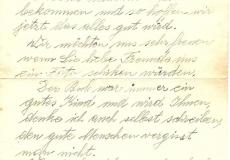 bekommen und so hoffen wir
jetzt, das alles gut wird.
Wir möchten uns sehr freuen
wenn Sie, liebe Freunde uns
ein Foto schicken würden.
Der Bub war immer ein
gutes Kind und wird Ihnen,
denke ich auch selbst schreiben,
den gute Menschen vergisst
man nicht.